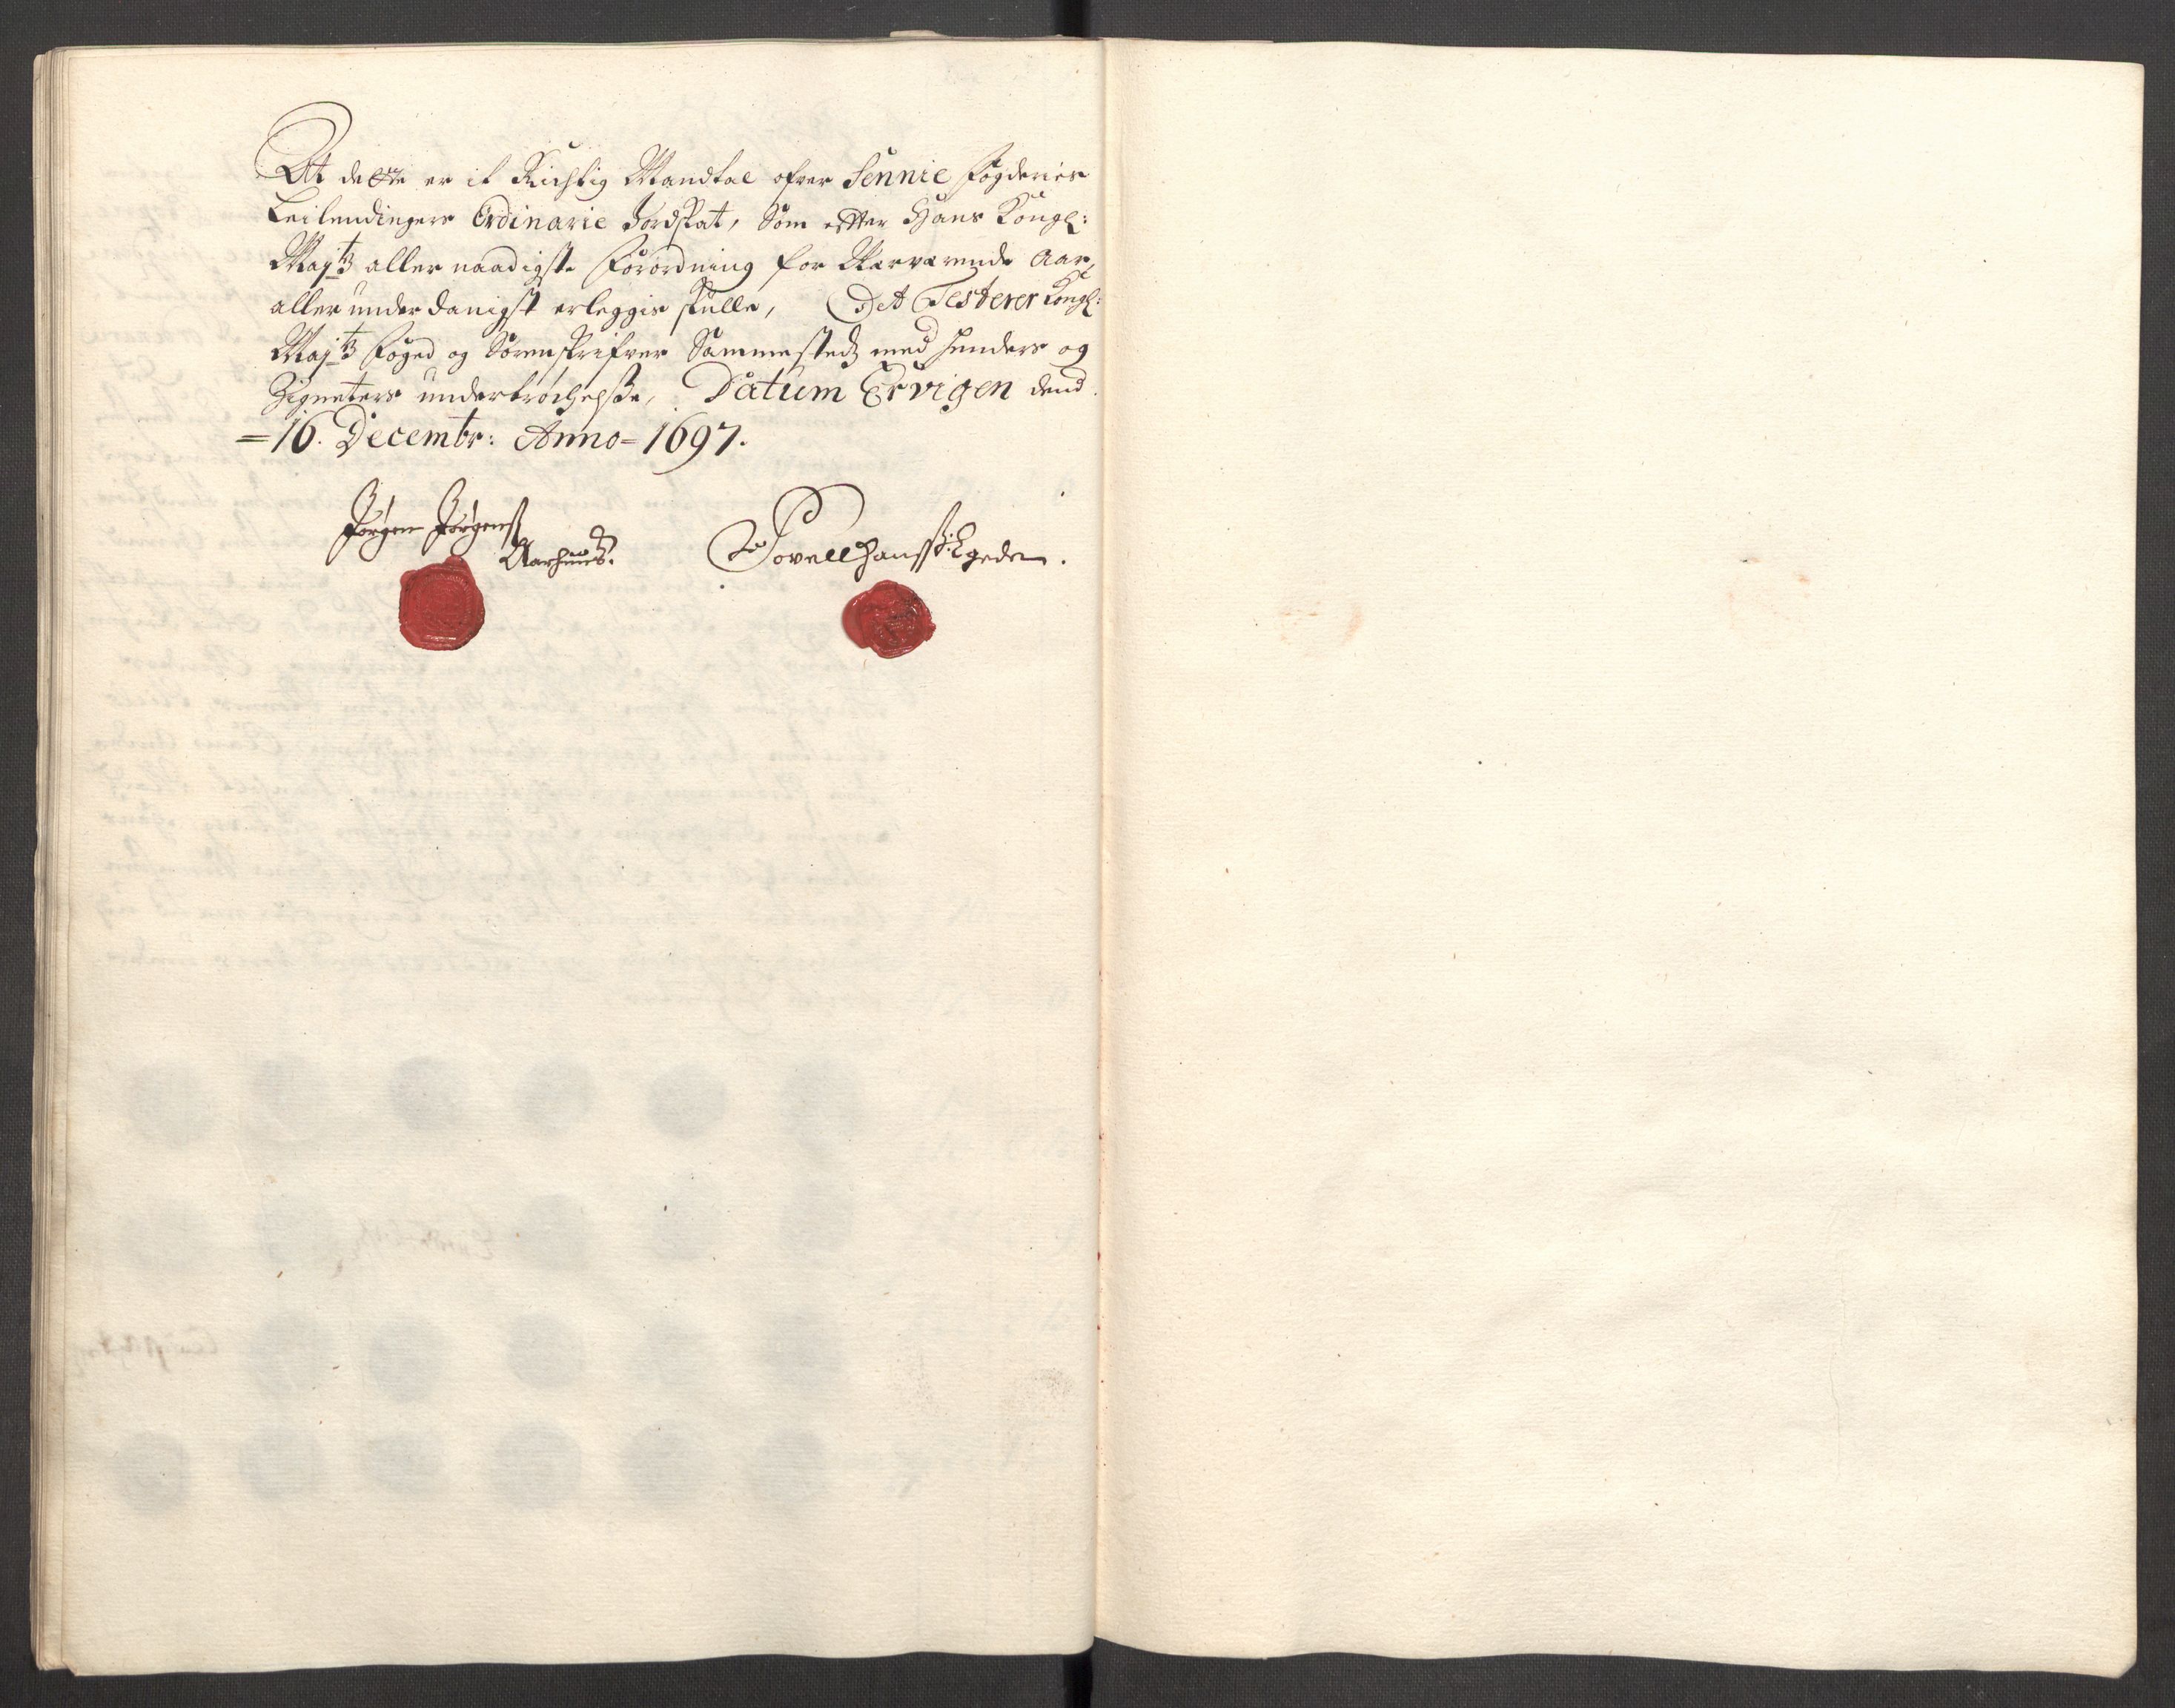 At dette er it Richtig Mandtal ofver Sennie fogderies
Leilendingers Ordinarie Jordskat, Som efter Hans Kongl:
Majts aller naadigste Forordning for Nærværende Aar,
aller underdanigst erleggis skulle, Det Testerer Kongl:
Majts foged og Sorenskrifver Sammesteds med hender og
Zigneters undertrøchelsse, Datum Ervigen dend
=16. Decembr: Anno= 1697.
Jørgen Jørgens
Aarhuus.
Povell Hanss: Egede.